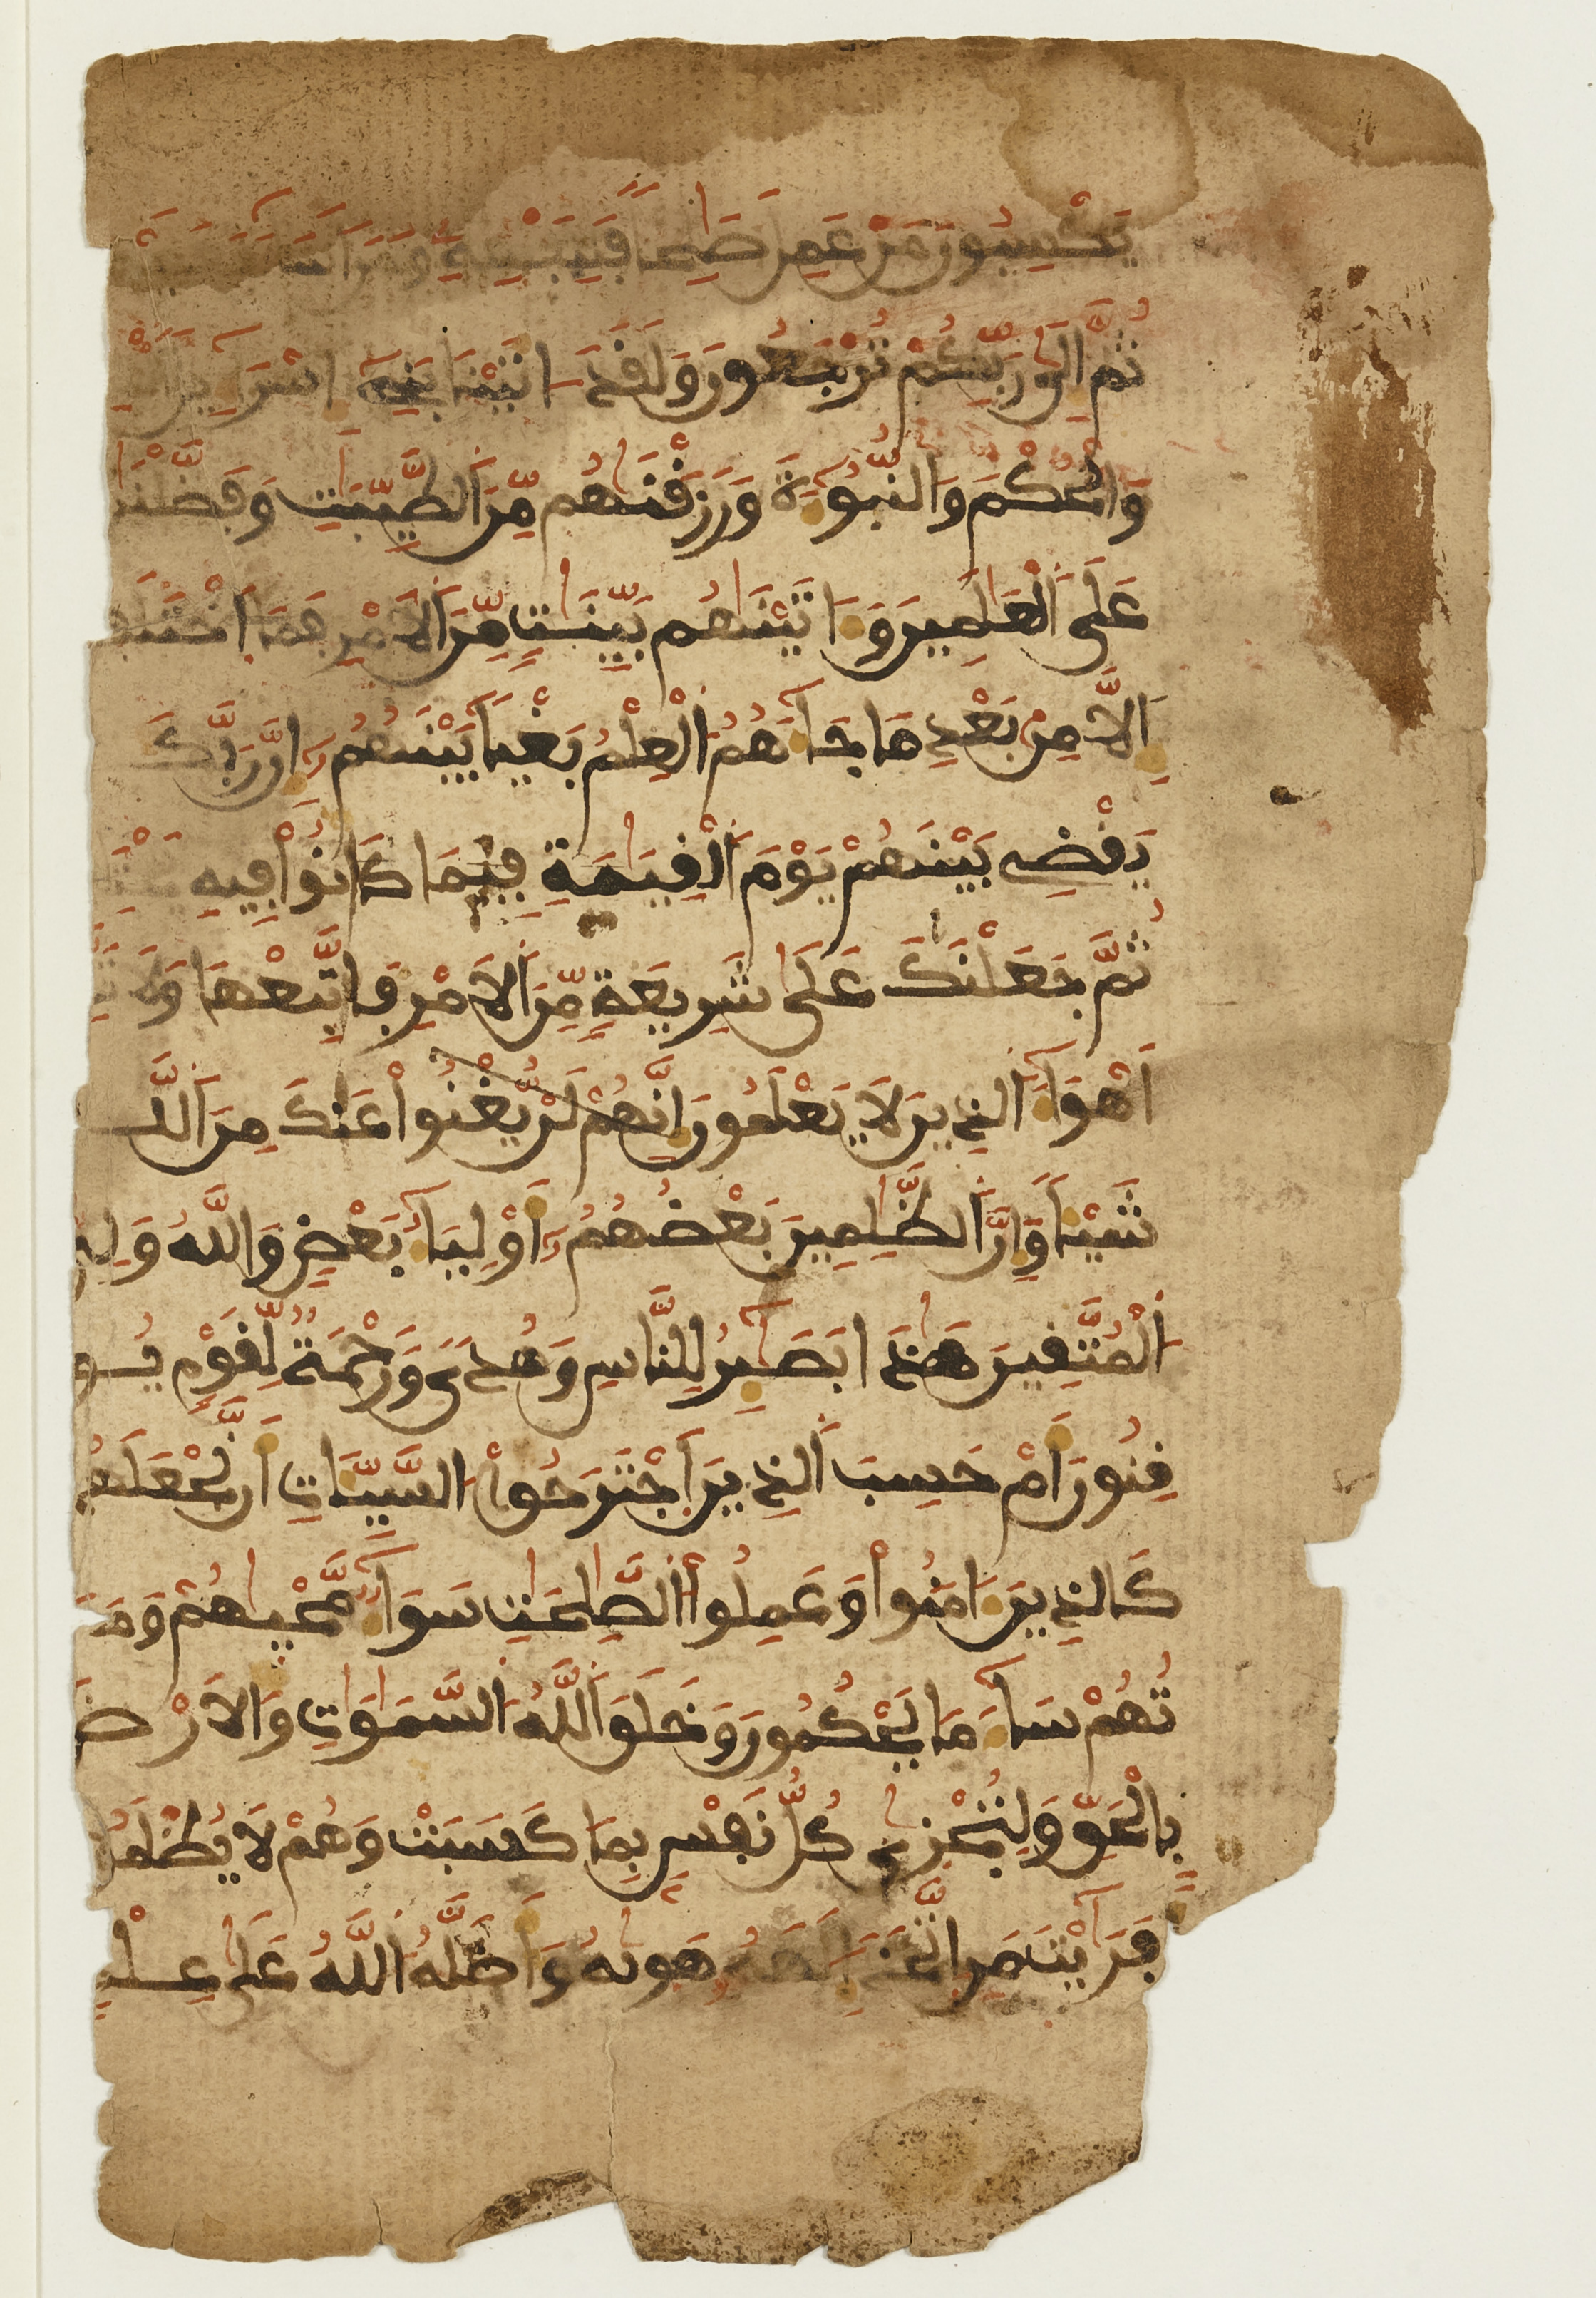 يَكْسِبُونَ مَنْ عَمِلَ صَٰلِحاً فَلِنَفْسِهِۦ وَمَنَ اَسَآءَ فَعَلَيْهَا
ثُمَّ إِلَىٰ رَبِّكُمْ تُرْجَعُونَ وَلَقَدَ اتَيْنَا بَنِےٓ إِسْرَآءِيلَ
وَالْحُكْمَ وَالنُّبُوٓءَةَ وَرَزَقْنَٰهُم مِّنَ اَلطَّيِّبَٰتِ وَفَضَّلْنَٰ
عَلَى اَلْعَٰلَمِينَ وَءَاتَيْنَٰهُم بَيِّنَٰتٍ مِّنَ اَلَامْرِ فَمَا اَخْتَلَفُ
إِلَّا مِنۢ بَعْدِ مَا جَآءَهُمُ اُلْعِلْمُ بَغْياً بَيْنَهُمُۥٓ إِنَّ رَبَّكَ
يَقْضِے بَيْنَهُمْ يَوْمَ اَلْقِيَٰمَةِ فِيمَا كَانُواْ فِيهِ
ثُمَّ جَعَلْنَٰكَ عَلَىٰ شَرِيعَةٍ مِّنَ اَلَامْرِ فَاتَّبِعْهَا وَلَا تَ
أَهْوَآءَ اَلذِينَ لَا يَعْلَمُونَ إِنَّهُمْ لَنْ يُّغْنُواْ عَنكَ مِنَ اَللَّهِ
شَيْـٔاً وَإِنَّ اَلظَّٰلِمِينَ بَعْضُهُمُۥٓ أَوْلِيَآءُ بَعْضٍ وَاللَّهُ وَلِىُّ
اُلْمُتَّقِينَ هَٰذَا بَصَٰٓئِرُ لِلنَّاسِ وَهُدىً وَرَحْمَةٌ لِّقَوْمٍ يُو
قِنُونَ أَمْ حَسِبَ اَلذِينَ اَجْتَرَحُواْ اُلسَّيِّـَٔاتِ أَن نَّجْعَلَهُمْ
كَالذِينَ ءَامَنُواْ وَعَمِلُواْ اُلصَّٰلِحَٰتِ سَوَآءٌ مَّحْيٰهُمْ وَمَمَ
تُهُمْ سَآءَ مَا يَحْكُمُونَ وَخَلَقَ اَللَّهُ اُلسَّمَٰوَٰتِ وَالَارْضَ
بِالْحَقِّ وَلِتُجْزَىٰ كُلُّ نَفْسٍ بِمَا كَسَبَتْ وَهُمْ لَا يُظْلَمُونَ
أَفَرَٰٓيْتَ مَنِ اِتَّخَذَ إِلَٰهَهُۥ هَوٰىهُ وَأَضَلَّهُ اُللَّهُ عَلَىٰ عِلْمٍ